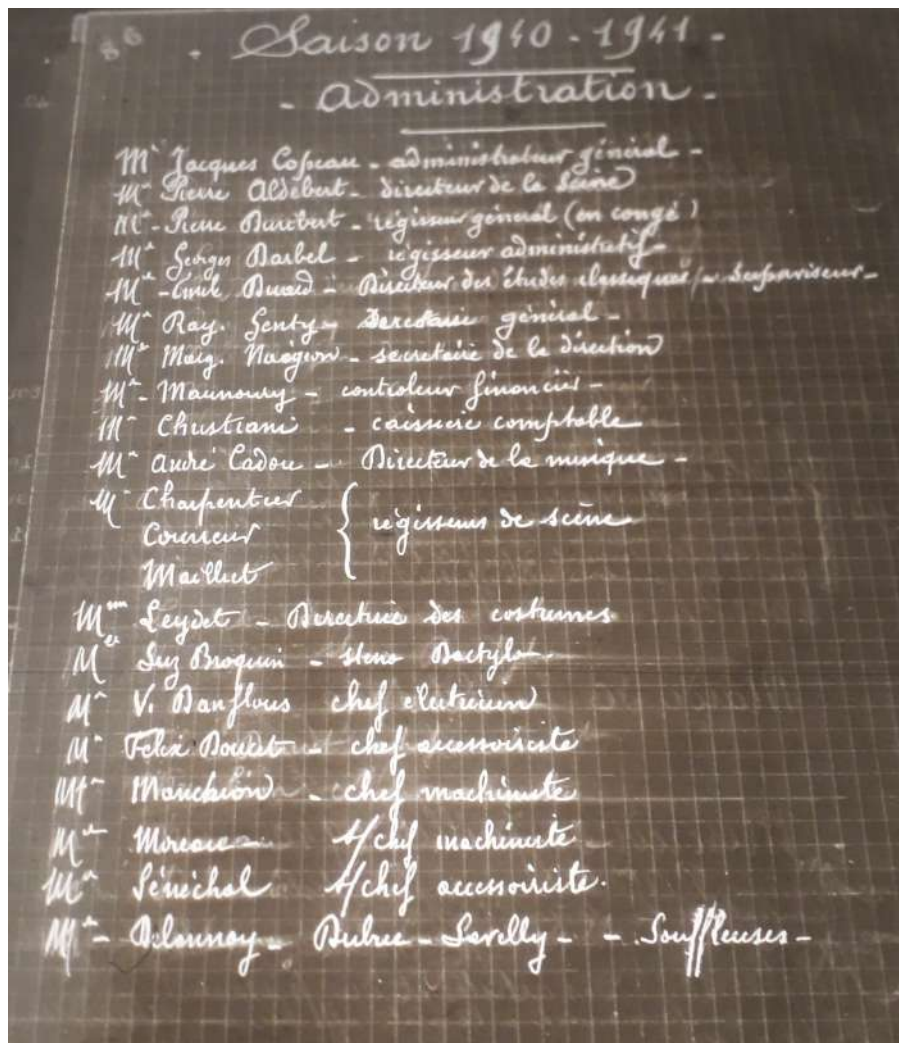 86 - Saison 1940-1941 -
- Administration -
Mr Jacques Copeau - administrateur général -
Mr Pierre Aldebert - directeur de la Scène
Mr - Pierre régisseur général (en congé)
Mr Georges Barbel - régisseur administratif -
Mr - Emile - Directeur des études classiques - Superviseur -
Mr Ray. Genty - Secretaire général -
Mr Marg. - secretaire de la direction
Mr - Maunoury - controleur financier -
Mr Christiani - caissier comptable
Mr André Cadou - Directeur de la musique -
M Charpentier
régisseurs de scène
Maillet
Mme Leydet - Directrice des costumes
Suz Broquin - steno Dactylo -
Mr V. Danflous chef électricien
Mr Felix Doucet - chef accessoiriste
Mr - chef machiniste
Mr Moreau s/chef machiniste
Mr Sénéchal s/chef accessoiriste.
Delaunay - Dubree - - Souffleuses -